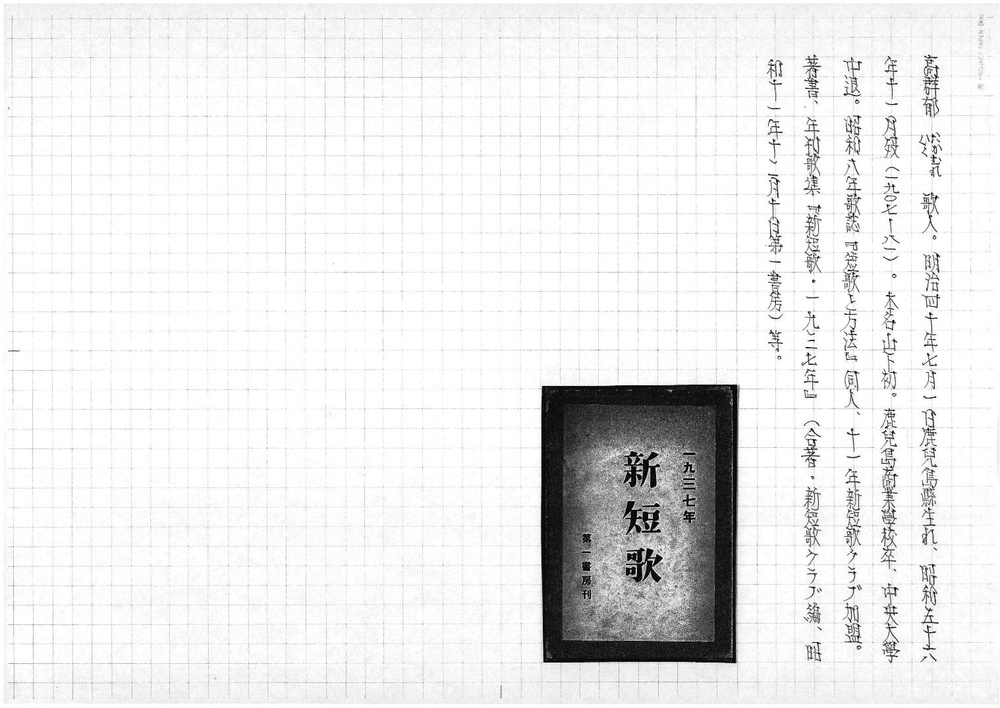 高群郁 たかむれ いく 歌人。明治四十年七月一日鹿兒島縣生れ、昭和五十六
年十一月歿（一九〇七-八一）。本名山下初。鹿兒島商業學校卒、中央大學
中退。昭和八年歌誌『短歌と方法』同人、十一年新短歌クラブ加盟。
著書、年刊歌集『新短歌・一九三七年』（合著。新短歌クラブ編、昭
和十一年十二月十日第一書房）等。
一九三七年
新短歌
第一書房刊